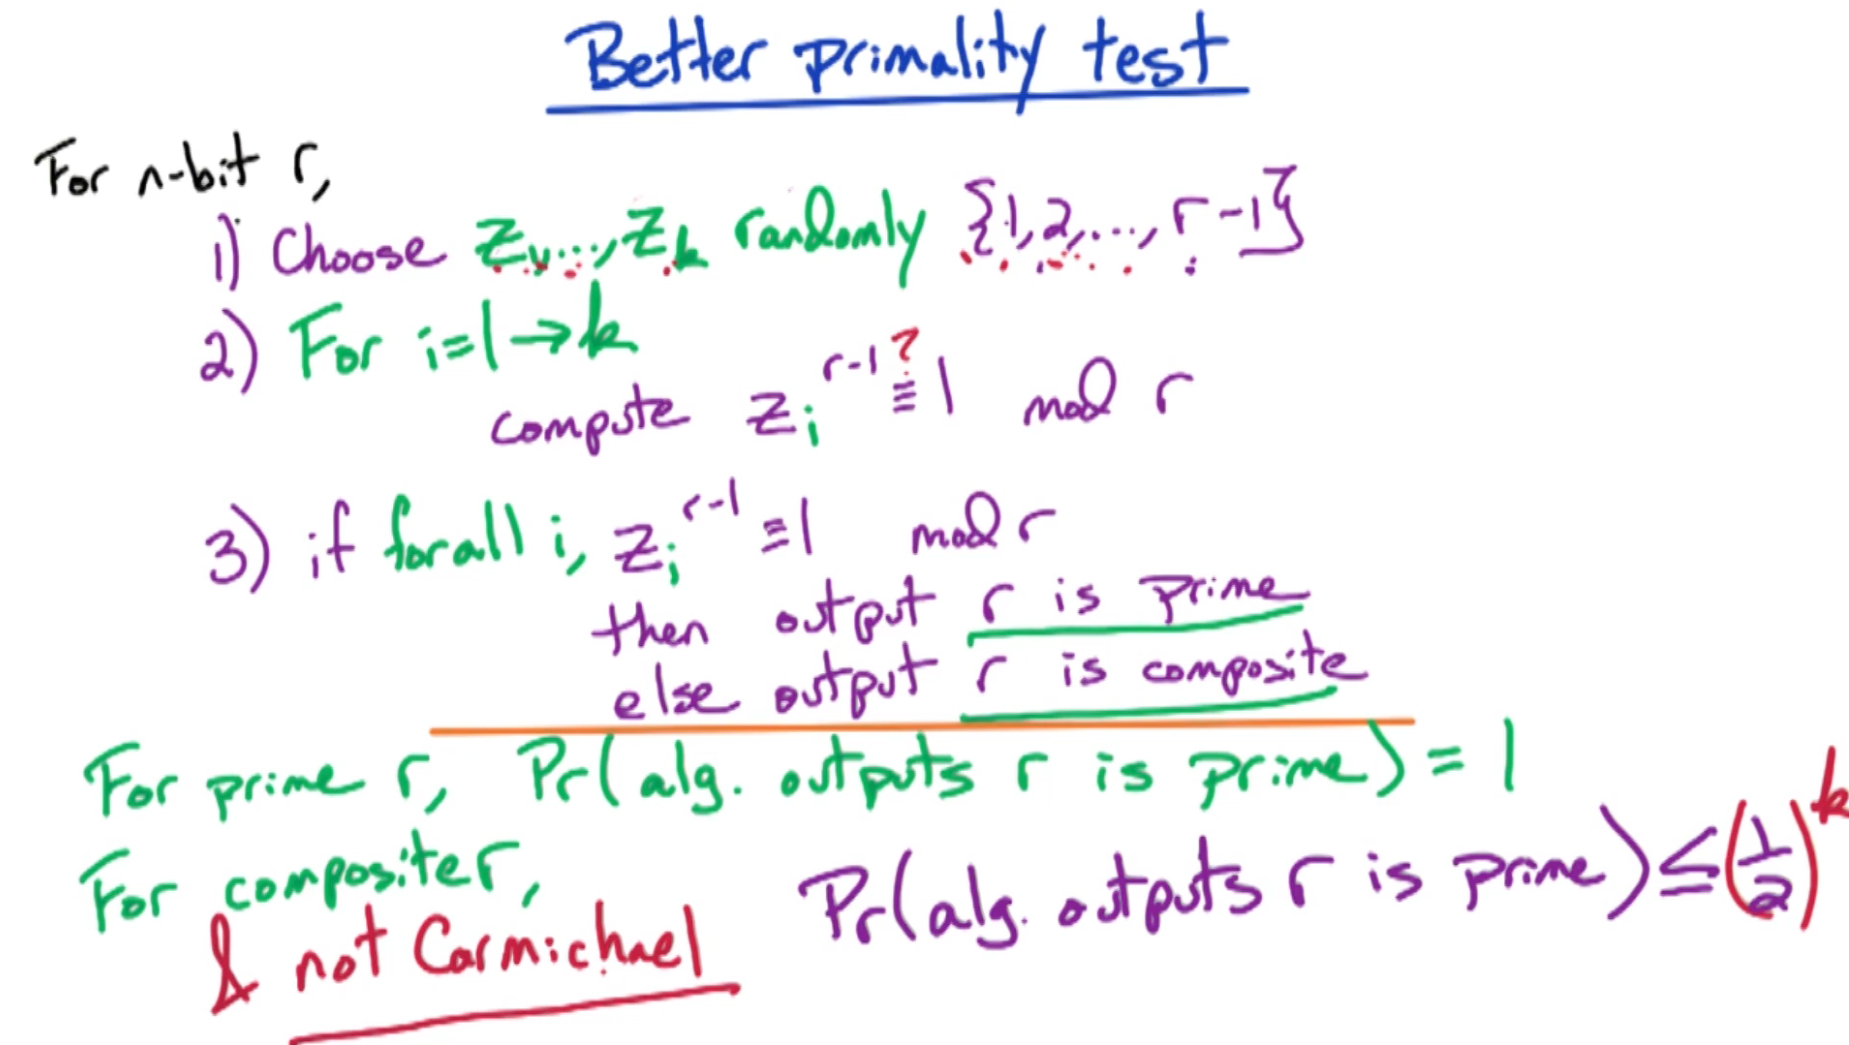 Better primality test
For n-bit r,
1) Choose z₁,...,z_k randomly {1,2,...,r-1}
2) For i=1→k
compute z_i^(r-1) ≡? 1 mod r
3) if for all i, z_i^(r-1) ≡ 1 mod r
then output r is prime
else output r is composite
For prime r, Pr(alg. outputs r is prime) = 1
For composite r, Pr(alg. outputs r is prime) ≤ (1/2)^k
& not Carmichael